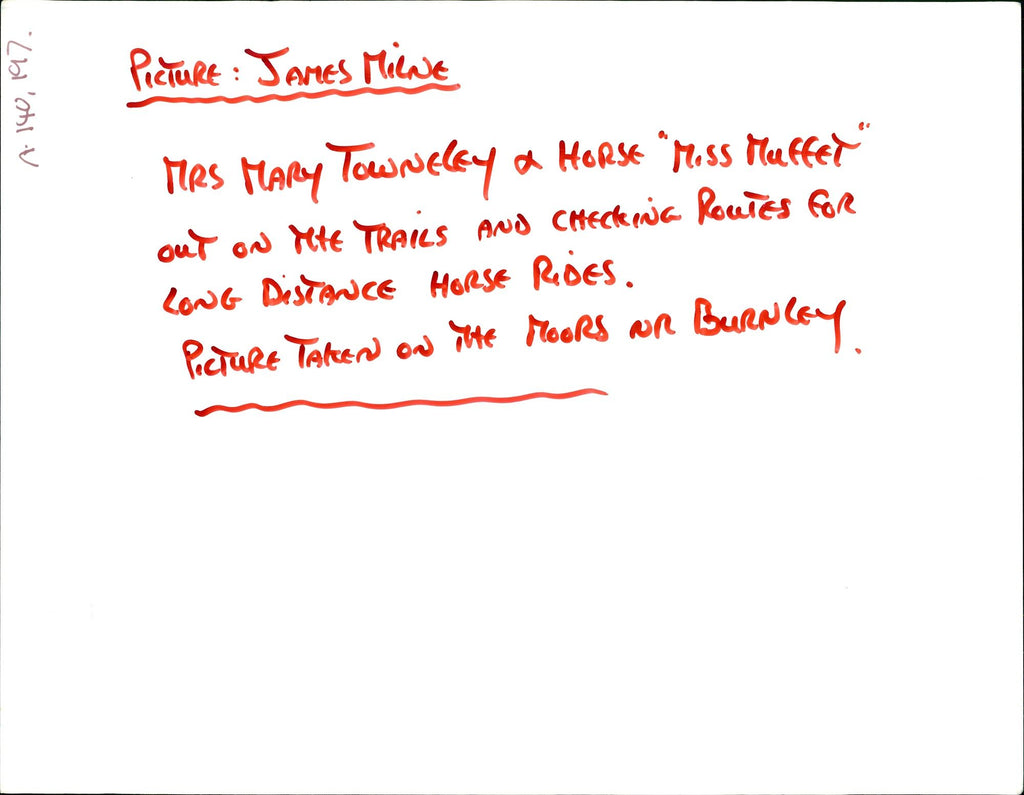 PICTURE: JAMES MILNE
MRS MARY TOWNELEY & HORSE "MISS MUFFET"
OUT ON THE TRAILS AND CHECKING ROUTES FOR
LONG DISTANCE HORSE RIDES.
PICTURE TAKEN ON THE MOORS NR BURNLEY.
A. 140, 197.